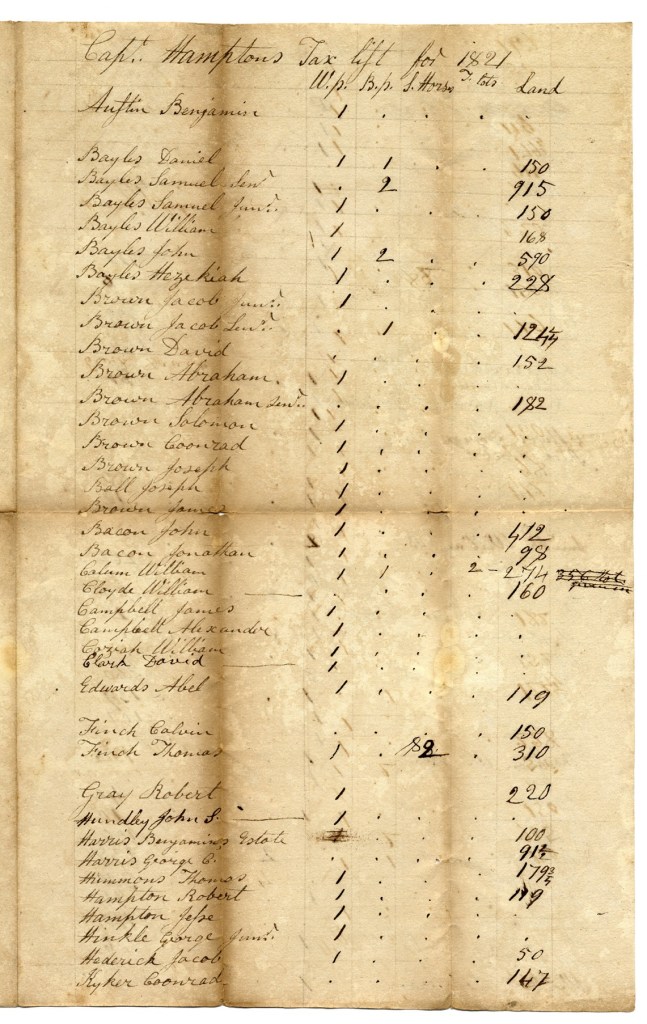 Capt. Hamptons Tax list for 1821
W.p. B.p. S. Horses T. lots Land
Austin Benjamin 1 . . . .
Bayles Daniel 1 1 . . 150
Bayles Samuel Senr. . 2 . . 915
Bayles Samuel Junr. 1 . . . 150
Bayles William 1 . . . 168
Bayles John 1 2 . . 590
Bayles Hezekiah 1 . . . 228
Brown Jacob Junr. 1 . . .
Brown Jacob Senr. . 1 . . 124
Brown David . . . . 152
Brown Abraham. 1 . . . .
Brown Abraham Senr. . . . . 182
Brown Solomon 1 . . . .
Brown Coonrad 1 . . . .
Brown Joseph 1 . . . .
Ball Joseph 1 . . . .
Brown James 1 . . . .
Bacon John 1 . . . 412
Bacon Jonathan 1 . . . 98
Calum William 1 1 . 2 – 274 356
Cloyde William . . . . 160
Campbell James 1 . . . .
Campbell Alexander 1 . . . .
William 1 . . . .
Clark David 1 . . . .
Edwards Abel 1 . . . 119
Finch Calvin . . . . 150
Finch Thomas 1 . 2 . 310
Gray Robert 1 . . . 220
Hundley John S. 1 . . . .
Harris Benjamins Estate 1 . . . 100
Harris George C. . . . . 91
Hummons Thomas 1 . . . 179
Hampton Robert 1 . . . 119
Hampton Jesse 1 . . . .
Hinkle George Junr. 1 . . . .
Hederick Jacob 1 . . . 50
Kyker Coonrad . . . . 147